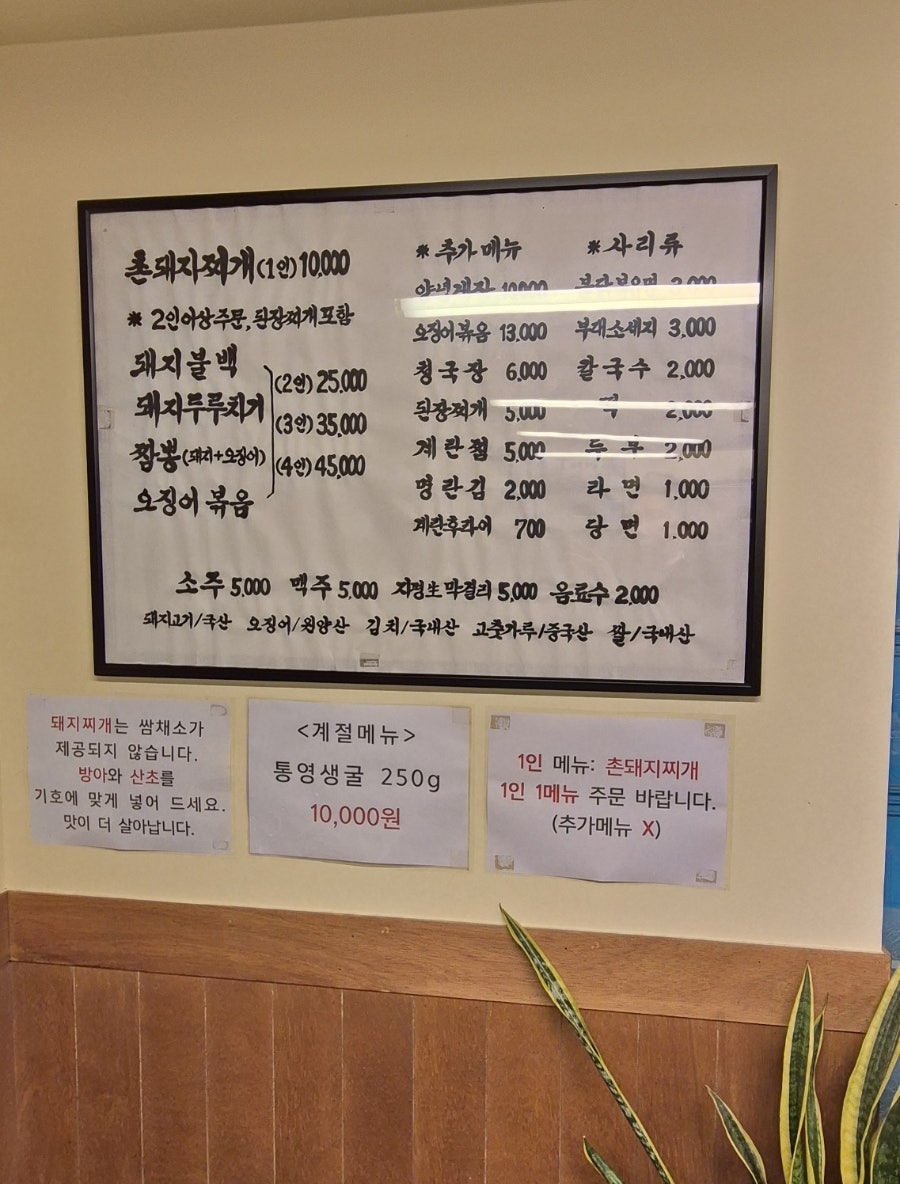 촌돼지찌개(1인) 10,000
* 2인이상주문, 된장찌개포함
돼지불백
돼지두루치기
짬뽕(돼지+오징어)
오징어볶음
(2인) 25,000
(3인) 35,000
(4인) 45,000
* 추가메뉴
양념게장 10,000
오징어볶음 13,000
청국장 6,000
된장찌개 5,000
계란찜 5,000
명란김 2,000
계란후라이 700
* 사리류
2,000
부대소세지 3,000
칼국수 2,000
떡 2,000
두부 2,000
라면 1,000
당면 1.000
소주 5,000 맥주 5,000 지평生막걸리 5,000 음료수 2,000
돼지고기/국산 오징어/원양산 김치/국내산 고춧가루/중국산 쌀/국내산
돼지찌개는 쌈채소가
제공되지 않습니다.
방아와 산초를
기호에 맞게 넣어 드세요.
맛이 더 살아납니다.
<계절메뉴>
통영생굴 250g
10,000원
1인 메뉴: 촌돼지찌개
1인 1메뉴 주문 바랍니다.
(추가메뉴 X)